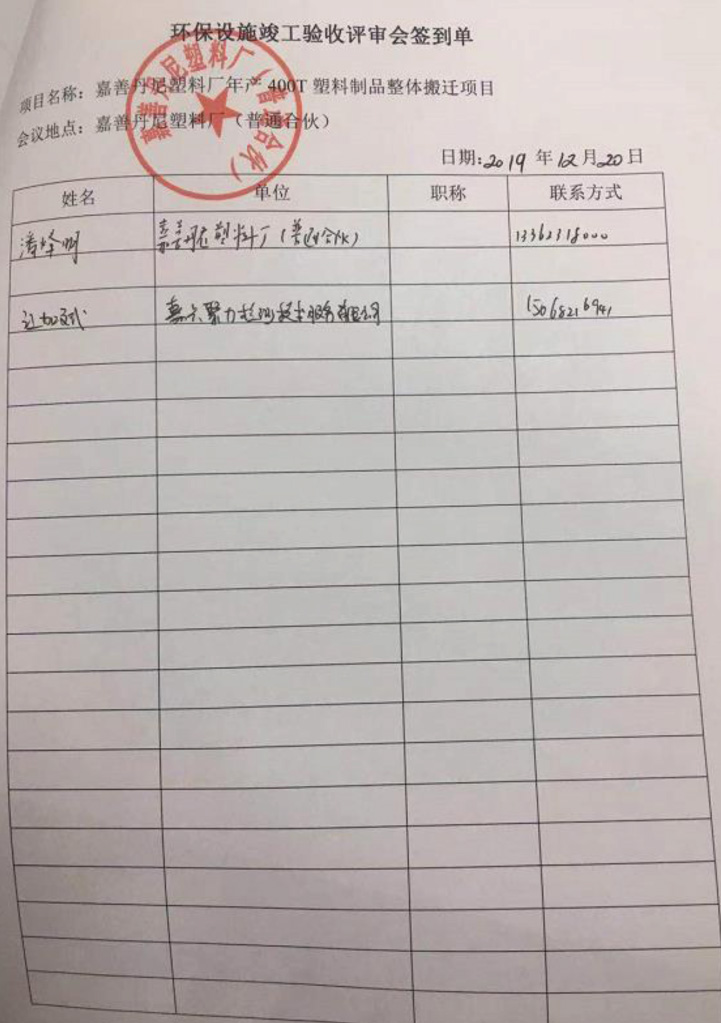 环保设施竣工验收评审会签到单
嘉善丹尼塑料厂（普通合伙）
项目名称：嘉善丹尼塑料厂年产400T塑料制品整体搬迁项目
会议地点：嘉善丹尼塑料厂（普通合伙）
日期:2019年12月20日
姓名 单位 职称 联系方式
嘉善丹尼塑料厂（普通合伙） 13362318000
15068216941